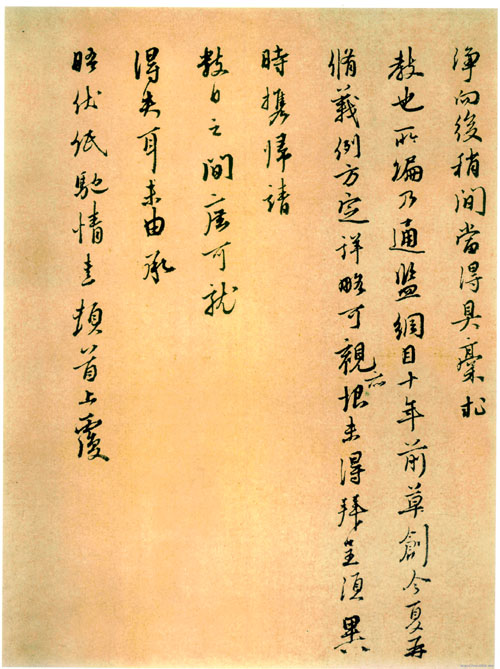 淨向後稍間當得具稾求
教也所編乃通鑑綱目十年前草創今夏再
脩義例方定詳略可觀亦恨未得拜呈須異
時攜歸請
數日之間庶可就
得失耳未由承
晤伏紙馳情熹頓首上覆